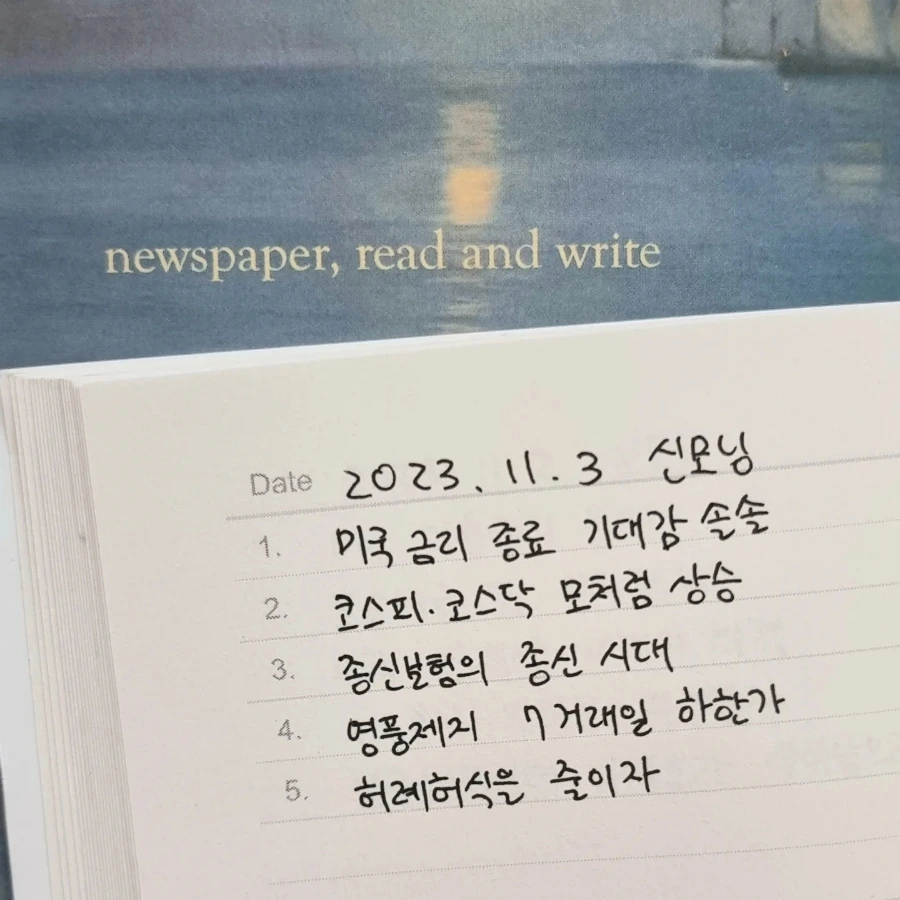 newspaper, read and write
Date 2023. 11. 3 신모닝
1. 미국 금리 종료 기대감 솔솔
2. 코스피·코스닥 모처럼 상승
3. 종신보험의 종신 시대
4. 영풍제지 7거래일 하한가
5. 허례허식을 줄이자